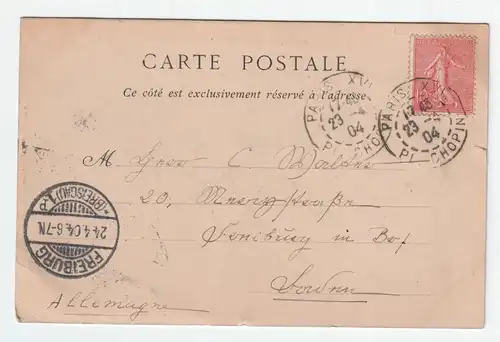 CARTE POSTALE
Ce côté est exclusivement réservé à l'adresse
PARIS XVI
17 45
23 - 4
04
PL. CHOPIN
PARIS XVI
17 45
23 - 4
04
PL. CHOPIN
M Herr C.
20,
Freiburg in
Baden
Allemagne
FREIBURG
24.4.04.6-7N.
(BREISGAU)